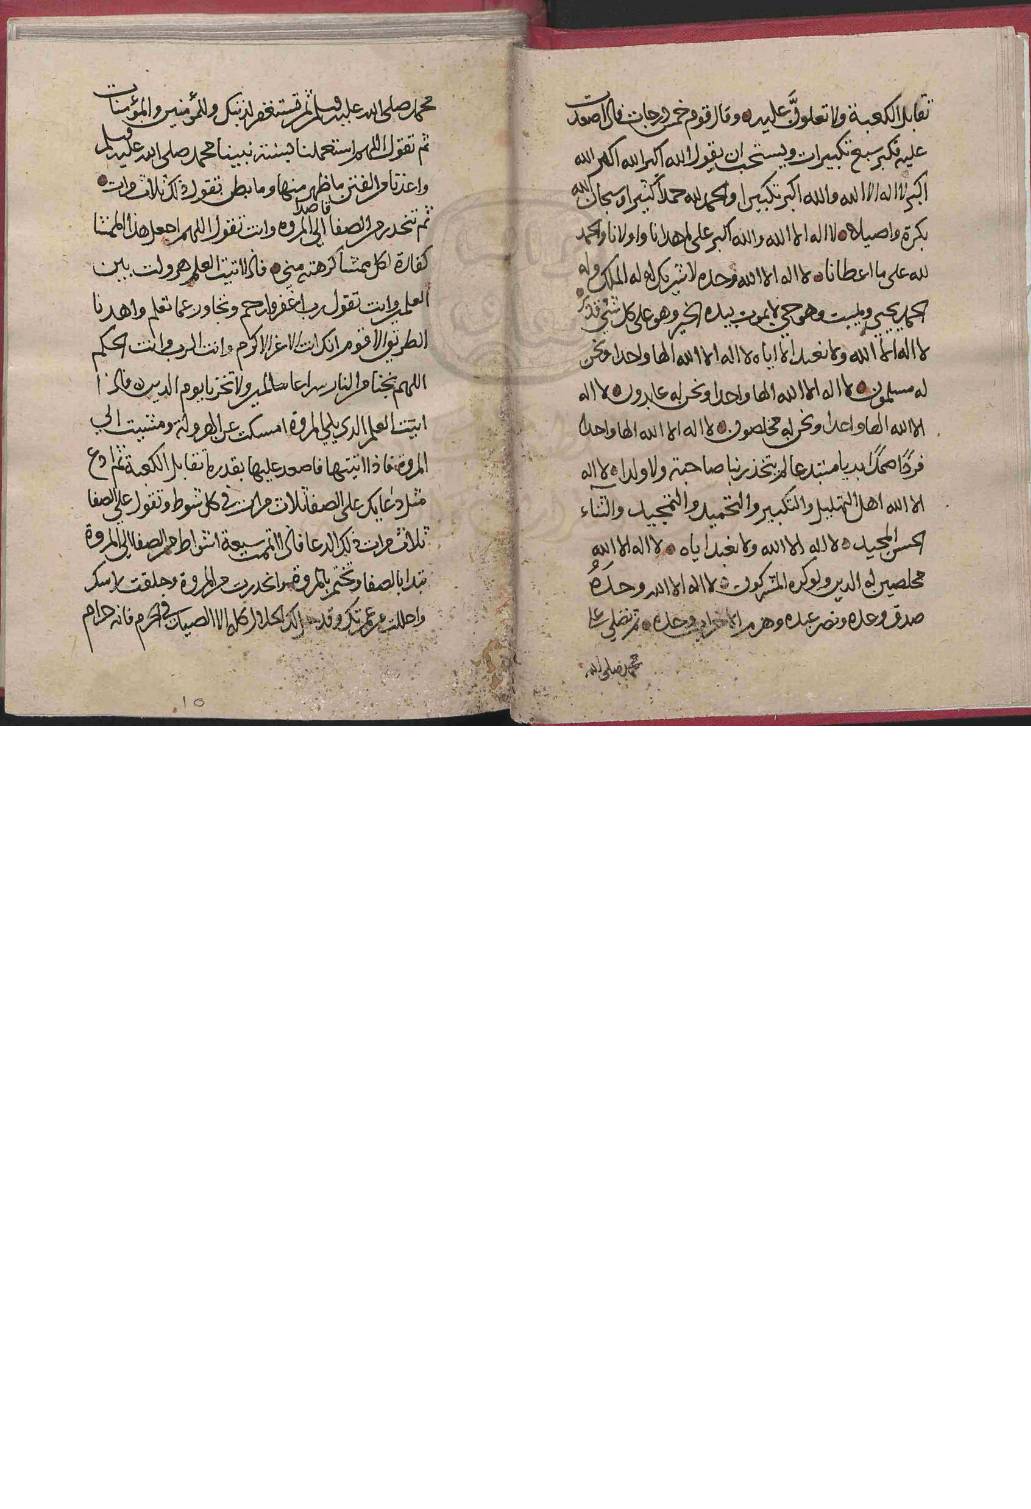 تقابل الكعبة ولا تعلون عليه وقال قوم خمس درجات فاذا صعدت
عليه فكبر سبع تكبيرات ويستحب ان يقول الله اكبر الله اكبر الله
اكبر لا اله الا الله والله اكبر تكبيرا والحمد لله حمدا كثيرا وسبحان الله
بكرة واصيلا لا اله الا الله والله اكبر على ما هدانا واولانا والحمد
لله على ما اعطانا لا اله الا الله وحده لا شريك له له الملك وله
الحمد يحيي ويميت وهو حي لا يموت بيده الخير وهو على كل شي قدير
لا اله الا الله ولا نعبد الا اياه لا اله الا الله الها واحدا ونحن
له مسلمون لا اله الا الله الها واحدا ونحن له عابدون لا اله
الا الله الها واحدا ونحن له مخلصون لا اله الا الله الها واحدا
فردا صمدا ابديا مبتدعا لم يتخذ ربنا صاحبة ولا ولدا لا اله
الا الله اهل التهليل والتكبير والتحميد والتمجيد والثناء
الحسن المجيد لا اله الا الله ولا نعبد اياه لا اله الا الله
مخلصين له الدين ولو كره المشركون لا اله الا الله وحده
صدق وعده ونصر عبده وهزم الاحزاب وحده ثم تصلي على
محمد صلى الله
محمد صلى الله عليه وسلم ثم تستغفر لذنبك وللمؤمنين والمؤمنات
ثم تقول اللهم استعملنا بسنة نبينا محمد صلى الله عليه وسلم
واعذنا من الفتن ما ظهر منها وما بطن تقول ذلك ثلاث مرات
ثم تنحدر من الصفا قاصدا الى المروه وانت تقول اللهم اجعل هذا الممشا
كفارة لكل ممشا كرهته مني فاذا اتيت العلم هرولت بين
العلمين وانت تقول رب اغفر وارحم وتجاوز عما تعلم واهدنا
الطريق الاقوم انك انت الاعز الاكرم وانت الرب وانت الحكم
اللهم نجنا من النار سراعا سالمين ولا تخزنا يوم الدين فاذا
اتيت العلم الذي يلي المروة امسكت عن الهرولة ومشيت الى
المروة فاذا اتيتها فاصعد عليها بقدر ما تقابل الكعبة ثم ادع
مثل دعايك على الصفا ثلاث مرات في كل شوط وتقول على الصفا
ثلاث مرات ذلك الدعا فاذا اتممت سبعة اشواط من الصفا الى المروة
تبدا بالصفا وتختم بالمروة وانحدرت من المروة وحلقت راسك
واحللت من عمرتك وقد حل لك الحلال كله الا الصيد في الحرم فانه حرام
١٥